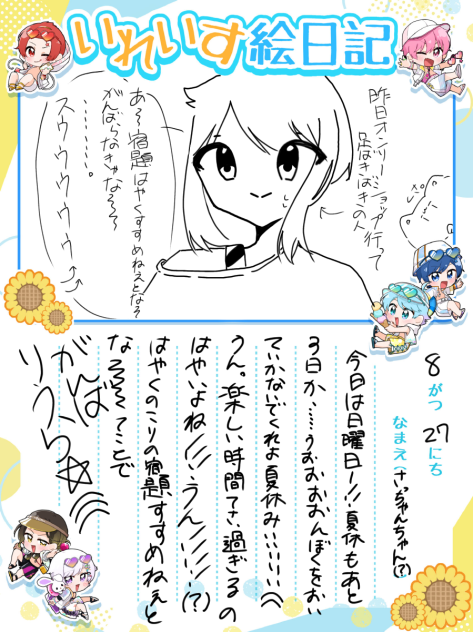 いれいす絵日記
昨日オンリーショップ行って
足ばきばきの人
あ～宿題はやくすすめねえとなぁ
がんばらなきゃなぁ～～
………。
スゥゥゥゥゥゥ
8がつ27にち
なまえ(さっちゃんちゃん(?)
今日は日曜日ー!!夏休もあと
3日か……うおおおおんぼくをおい
ていかないでくれよ夏休みいいいい
うん。楽しい時間てさ、過ぎるの
はやいよね////うん////(?)
はやくのこりの宿題すすめねぇと
なぁぁぁてことで
がんば
りうら☆